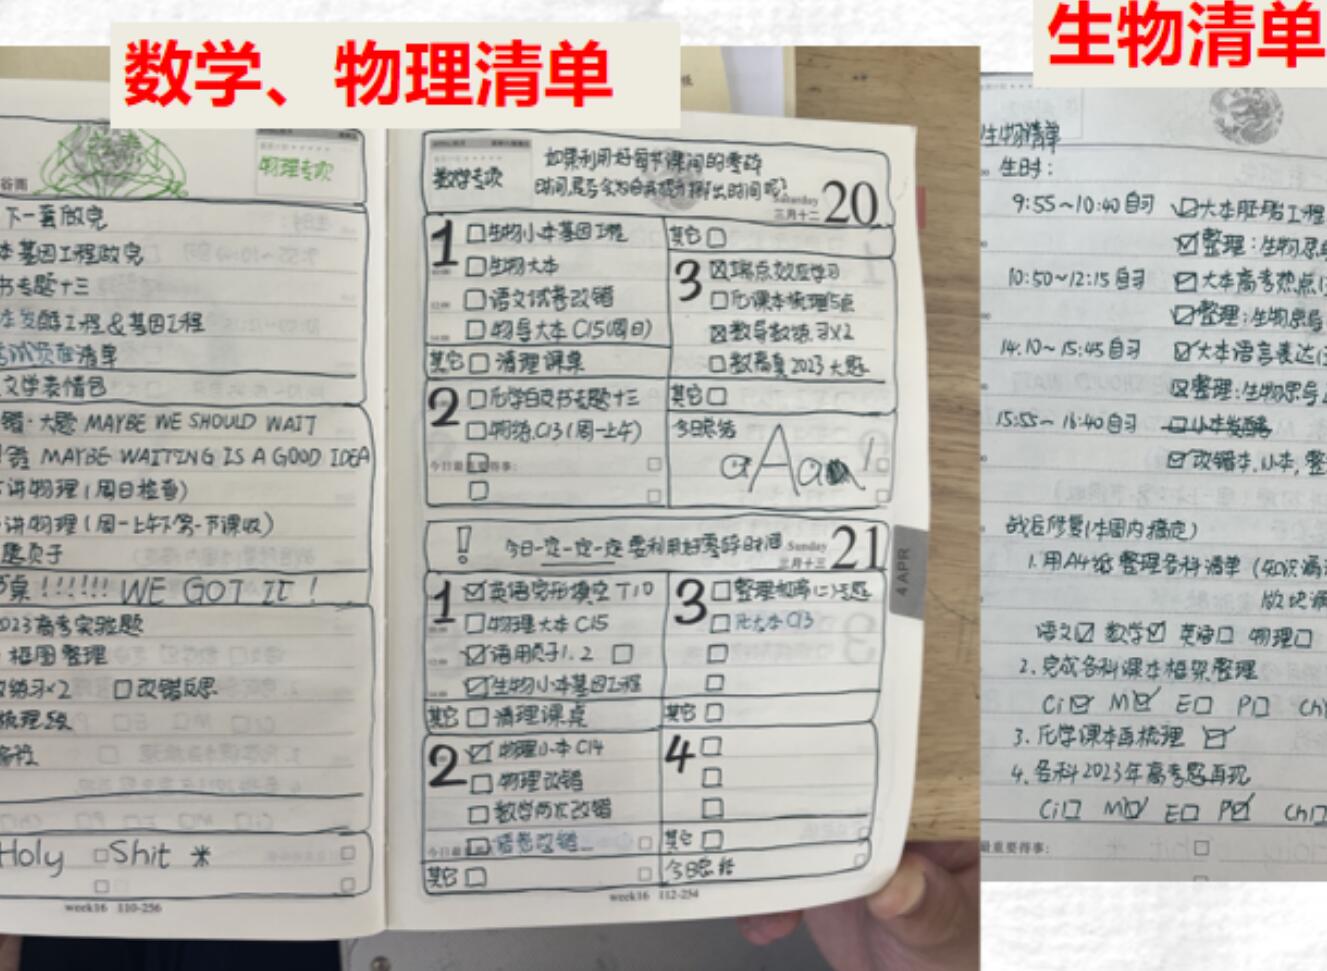 数学、物理清单
生物清单
谷雨
物理专项
下一套做完
本基因工程做完
书专题十三
发酵工程&基因工程
清单
文学表情包
错·大题 MAYBE WE SHOULD WAIT
MAYBE WAITING IS A GOOD IDEA
讲物理(周日检查)
讲物理(周一上午第一节课收)
桌!!!!!! WE GOT IT!
2023高考实验题
框图整理
练习×2 □改错反思
梳理
Holy □Shit 米
week16 110-256
数学专项
如果利用好每节课间的零碎
时间,是否会为自我提升挤出时间呢?
Saturday
三月十二
20
1 □生物小本基因工程
□生物大本
□语文试卷改错
□物导大本C15(周日)
其它□ 清理课桌
2 □化学白皮书专题十三
□物练C13(周一上午)
今日最重要得事:
其它□
3 ☒端点效应学习
□化课本梳理5点
☒数导数练习×2
□数高真2023大题
其它□
今日总结
aAaa!
! 今日一定一定一定要利用好零碎时间
Sunday
三月十三
21
1 ☑英语完形填空 T10
□物理大本C15
☑语用贞子1.2 □
☑生物小本基因工程
其它□清理课桌
2 ☑物理小本C14
□物理改错
□数学改错
今日最
□语卷改错
其它□
3 □整理专题
□化大本C13
其它□
4 □
其它□
今日总结
4 APR
week16 112-254
生物清单
生时:
9:55~10:40自习 ☑大本胚胎工程
☑整理:生物思
10:50~12:15自习 ☑大本高考热点
☑整理:生物思导
14:10~15:45自习 ☑大本语言表达
☒整理:生物思导
15:55~16:40自习 □小本发酵
☑改错本,小本,整
战后修复(本周内搞定)
1.用A4纸整理各科清单(知识漏
语文☑ 数学☑ 英语□ 物理□
2.完成各科课本框架整理
Ci☑ M☑ E□ P□ Ch
3.化学课本再梳理 ☑
4.各科2023年高考题再现
Ci□ M☑ E□ P☑ Ch□
最重要得事: